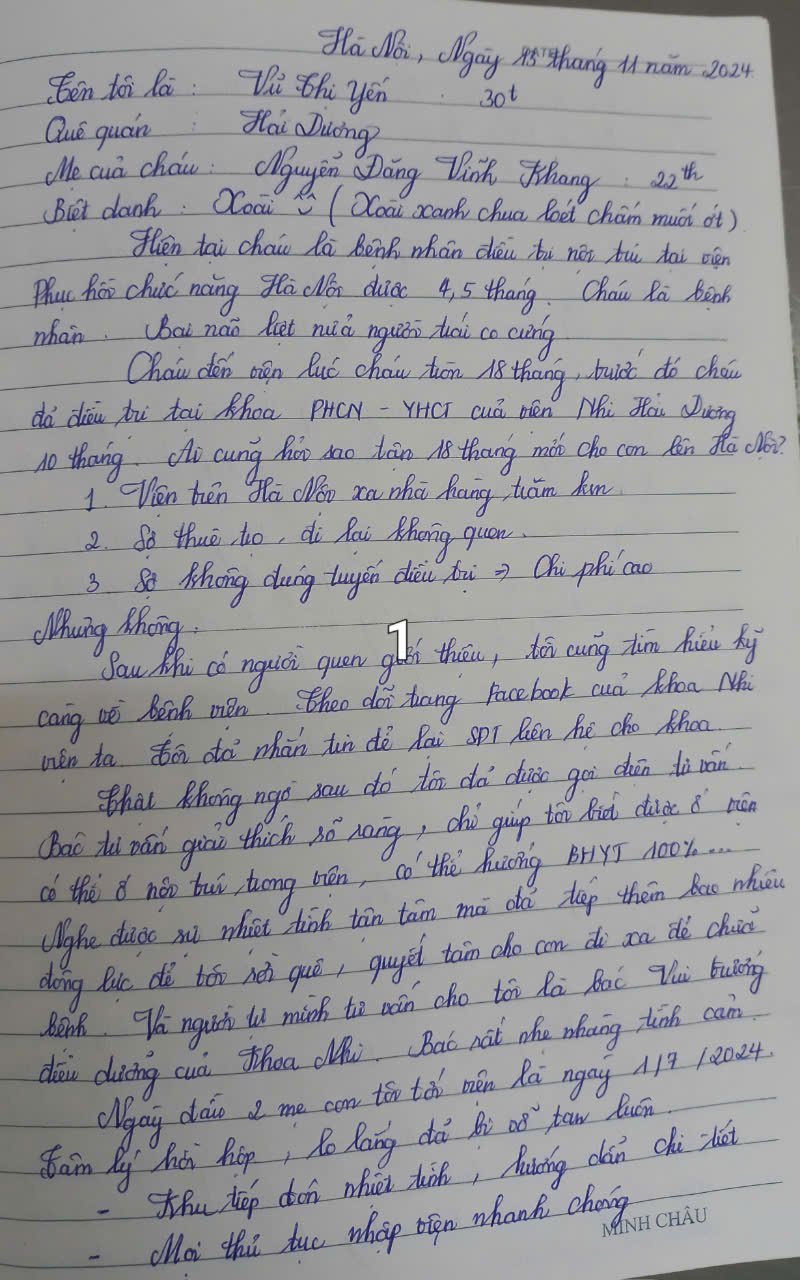 Hà Nội, Ngày 15 tháng 11 năm 2024.
Tên tôi là : Vũ Thị Yến . 30t
Quê quán : Hải Dương
Mẹ của cháu : Nguyễn Đăng Vĩnh Khang : 22th
Biệt danh : Xoài (Xoài xanh chua loét chấm muối ớt)
Hiện tại cháu là bệnh nhân điều trị nội trú tại viện
Phục hồi chức năng Hà Nội được 4,5 tháng. Cháu là bệnh
nhân. Bại não liệt nửa người trái co cứng
Cháu đến viện lúc cháu tròn 18 tháng, trước đó cháu
đã điều trị tại khoa PHCN - YHCT của viện Nhi Hải Dương
10 tháng. Ai cũng hỏi sao tận 18 tháng mới cho con lên Hà Nội?
1. Viện trên Hà Nội xa nhà hàng trăm km
2. Sợ thuê trọ, đi lại không quen.
3 Sợ không đúng tuyến điều trị => Chi phí cao
Nhưng không.
1
Sau khi có người quen giới thiệu, tôi cũng tìm hiểu kỹ
càng về bệnh viện. Theo dõi trang Facebook của khoa Nhi
viện ta. Tôi đã nhắn tin để lại SĐT liên hệ cho khoa.
Thật không ngờ sau đó tôi đã được gọi điện tư vấn.
Bác tư vấn giải thích rõ ràng, chỉ giúp tôi biết được ở viện
có thể ở nội trú trong viện, có thể hưởng BHYT 100%...
Nghe được sự nhiệt tình tận tâm mà đã tiếp thêm bao nhiêu
động lực để tôi rời quê, quyết tâm cho con đi xa để chữa
bệnh. Và người tự mình tư vấn cho tôi là bác Vui trưởng
điều dưỡng của Khoa Nhi. Bác rất nhẹ nhàng tình cảm.
Ngày đầu 2 mẹ con tôi tới viện là ngày 1/7/2024.
Tâm lý hồi hộp, lo lắng đã bị vỡ tan luôn.
- Khu tiếp đón nhiệt tình, hướng dẫn chi tiết
- Mọi thủ tục nhập viện nhanh chóng
MINH CHÂU